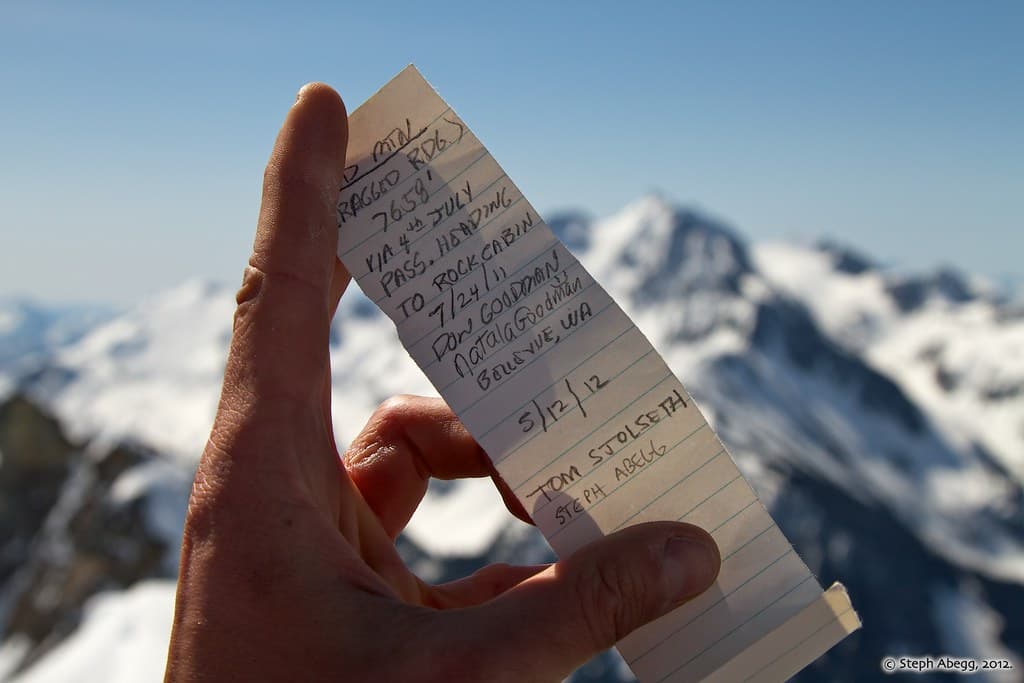 D MTN
RAGGED RDG)
7658'
VIA 4th JULY
PASS. HEADING
TO ROCK CABIN
7/24/11
DON GOODMAN
Natala Goodman
BELLEVUE, WA
5/12/12
TOM SJOLSETH
STEPH ABEGG
© Steph Abegg, 2012.